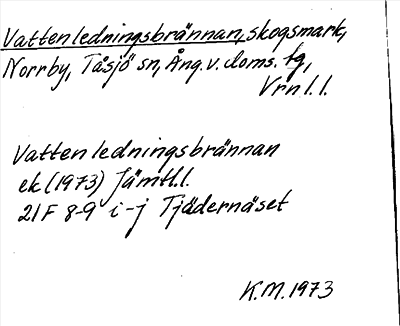 Vattenledningsbrännan, skogsmark,
Norrby, Tåsjö sn, Ång. v. doms. tg,
Vrn l. l.
Vattenledningsbrännan
ek (1973) Jämtl.l.
21F 8-9 i-j Tjädernäset
K.M. 1973